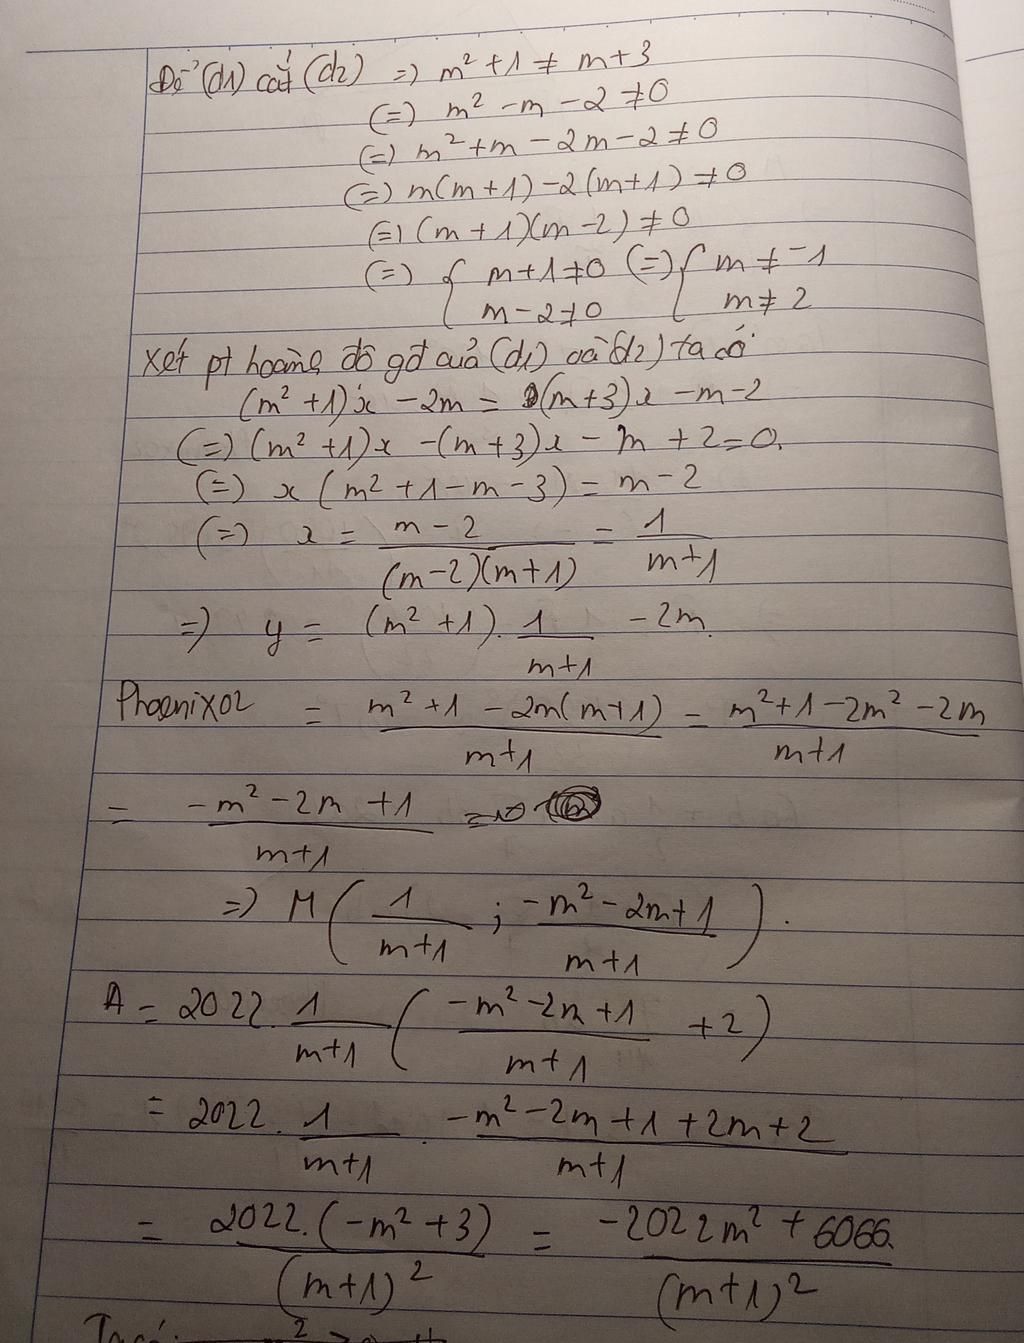 Để (d1) cắt (d2) => m² + 1 ≠ m + 3
(=) m² - m - 2 ≠ 0
(=) m² + m - 2m - 2 ≠ 0
(=) m(m + 1) - 2(m + 1) ≠ 0
(=) (m + 1)(m - 2) ≠ 0
(=) { m + 1 ≠ 0 (=) { m ≠ -1
m - 2 ≠ 0 m ≠ 2
Xét pt hoành độ gđ của (d1) và (d2) ta có
(m² + 1)x - 2m = (m + 3)x - m - 2
(=) (m² + 1)x - (m + 3)x - m + 2 = 0.
(=) x (m² + 1 - m - 3) = m - 2
(=) x = \frac{m - 2}{(m - 2)(m + 1)} = \frac{1}{m + 1}
=> y = (m² + 1). \frac{1}{m + 1} - 2m.
Phoenix02 = \frac{m² + 1 - 2m(m + 1)}{m + 1} = \frac{m² + 1 - 2m² - 2m}{m + 1}
= \frac{-m² - 2m + 1}{m + 1}
=> M ( \frac{1}{m + 1} ; \frac{-m² - 2m + 1}{m + 1} ).
A = 2022. \frac{1}{m + 1} ( \frac{-m² - 2m + 1}{m + 1} + 2 )
= 2022. \frac{1}{m + 1} . \frac{-m² - 2m + 1 + 2m + 2}{m + 1}
= \frac{2022.(-m² + 3)}{(m + 1)²} = \frac{-2022m² + 6066.}{(m + 1)²}
Ta có: